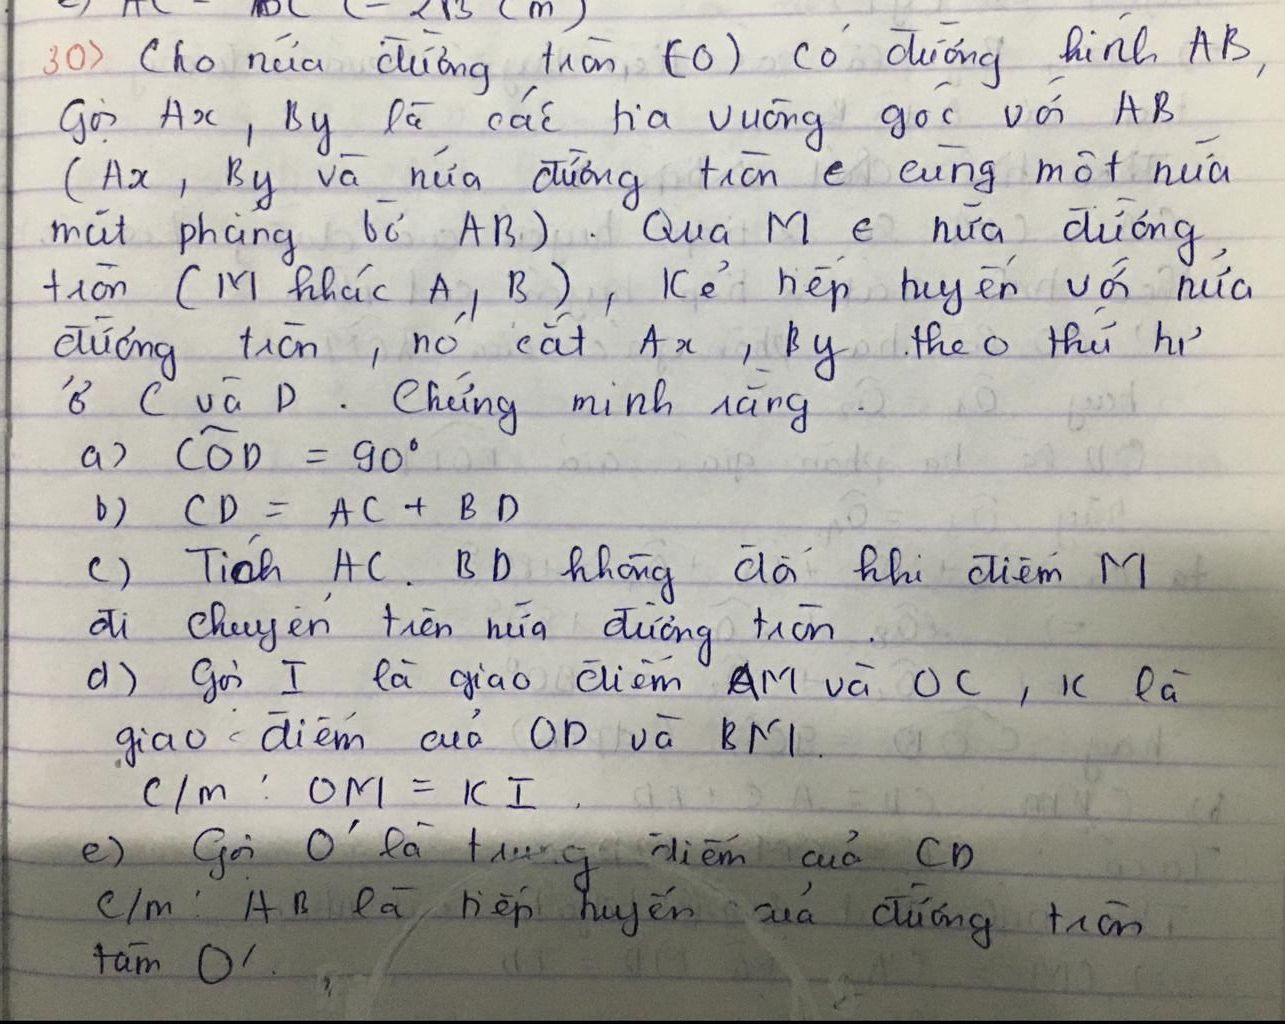 c) AC = BC (= 2√3 cm)
30) Cho nửa đường tròn (O) có đường kính AB,
Gọi Ax, By là các tia vuông góc với AB
(Ax, By và nửa đường tròn ∈ cùng một nửa
mặt phẳng bờ AB). Qua M ∈ nửa đường
tròn (M khác A, B), kẻ tiếp tuyến với nửa
đường tròn, nó cắt Ax, By theo thứ tự
ở C và D. Chứng minh rằng.
a) CÔD = 90°
b) CD = AC + BD
c) Tích AC. BD không đổi khi điểm M
di chuyển trên nửa đường tròn.
d) Gọi I là giao điểm AM và OC, K là
giao điểm của OD và BM.
C/m: OM = KI.
e) Gọi O' là trung điểm của CD
C/m: AB là tiếp tuyến của đường tròn
tâm O'.